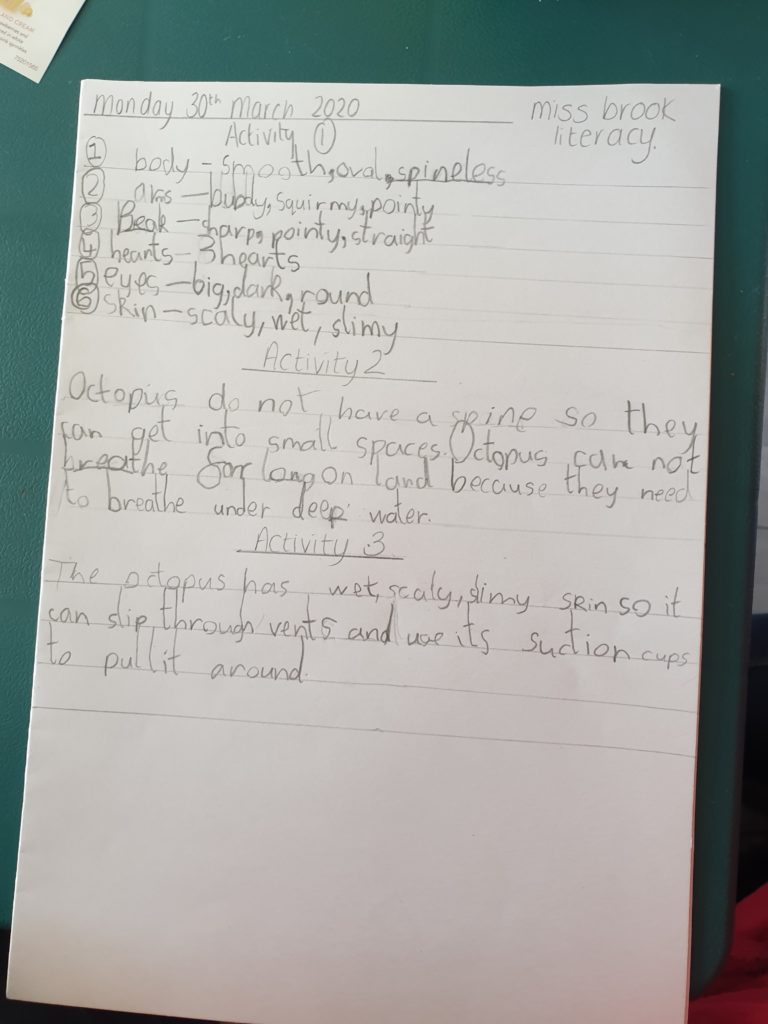 AND CREAM
monday 30th march 2020
miss brook
literacy.
Activity ①
① body - smooth, oval, spineless
② arms - bubbly, squirmy, pointy
③ Beak - sharp, pointy, straight
④ hearts - 3 hearts
⑤ eyes - big, dark, round
⑥ skin - scaly, wet, slimy
Activity 2
Octopus do not have a spine so they
can get into small spaces. Octopus can not
breathe for long on land because they need
to breathe under deep water.
Activity 3
The octopus has wet, scaly, slimy skin so it
can slip through vents and use its suction cups
to pull it around.